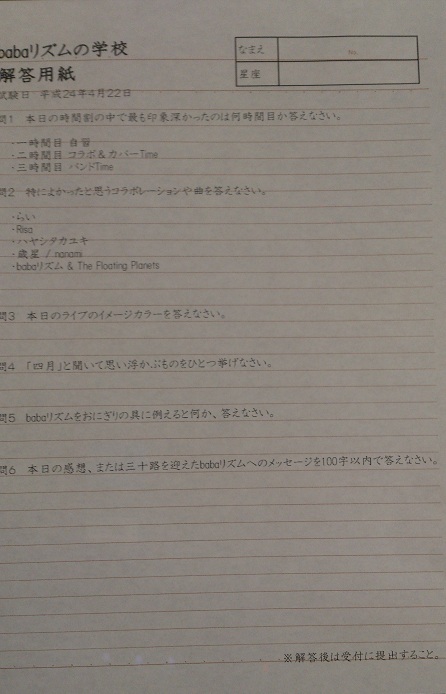 babaリズムの学校
解答用紙
試験日 平成24年4月22日
なまえ
星座
問1 本日の時間割の中で最も印象深かったのは何時間目か答えなさい。
・一時間目 自習
・二時間目 コラボ&カバーTime
・三時間目 バンドTime
問2 特によかったと思うコラボレーションや曲を答えなさい。
・らい
・Risa
・ハヤシタカユキ
・歳星 / nanami
・babaリズム & The Floating Planets
問3 本日のライブのイメージカラーを答えなさい。
問4 「四月」と聞いて思い浮かぶものをひとつ挙げなさい。
問5 babaリズムをおにぎりの具に例えると何か、答えなさい。
問6 本日の感想、または三十路を迎えたbabaリズムへのメッセージを100字以内で答えなさい。
※解答後は受付に提出すること。